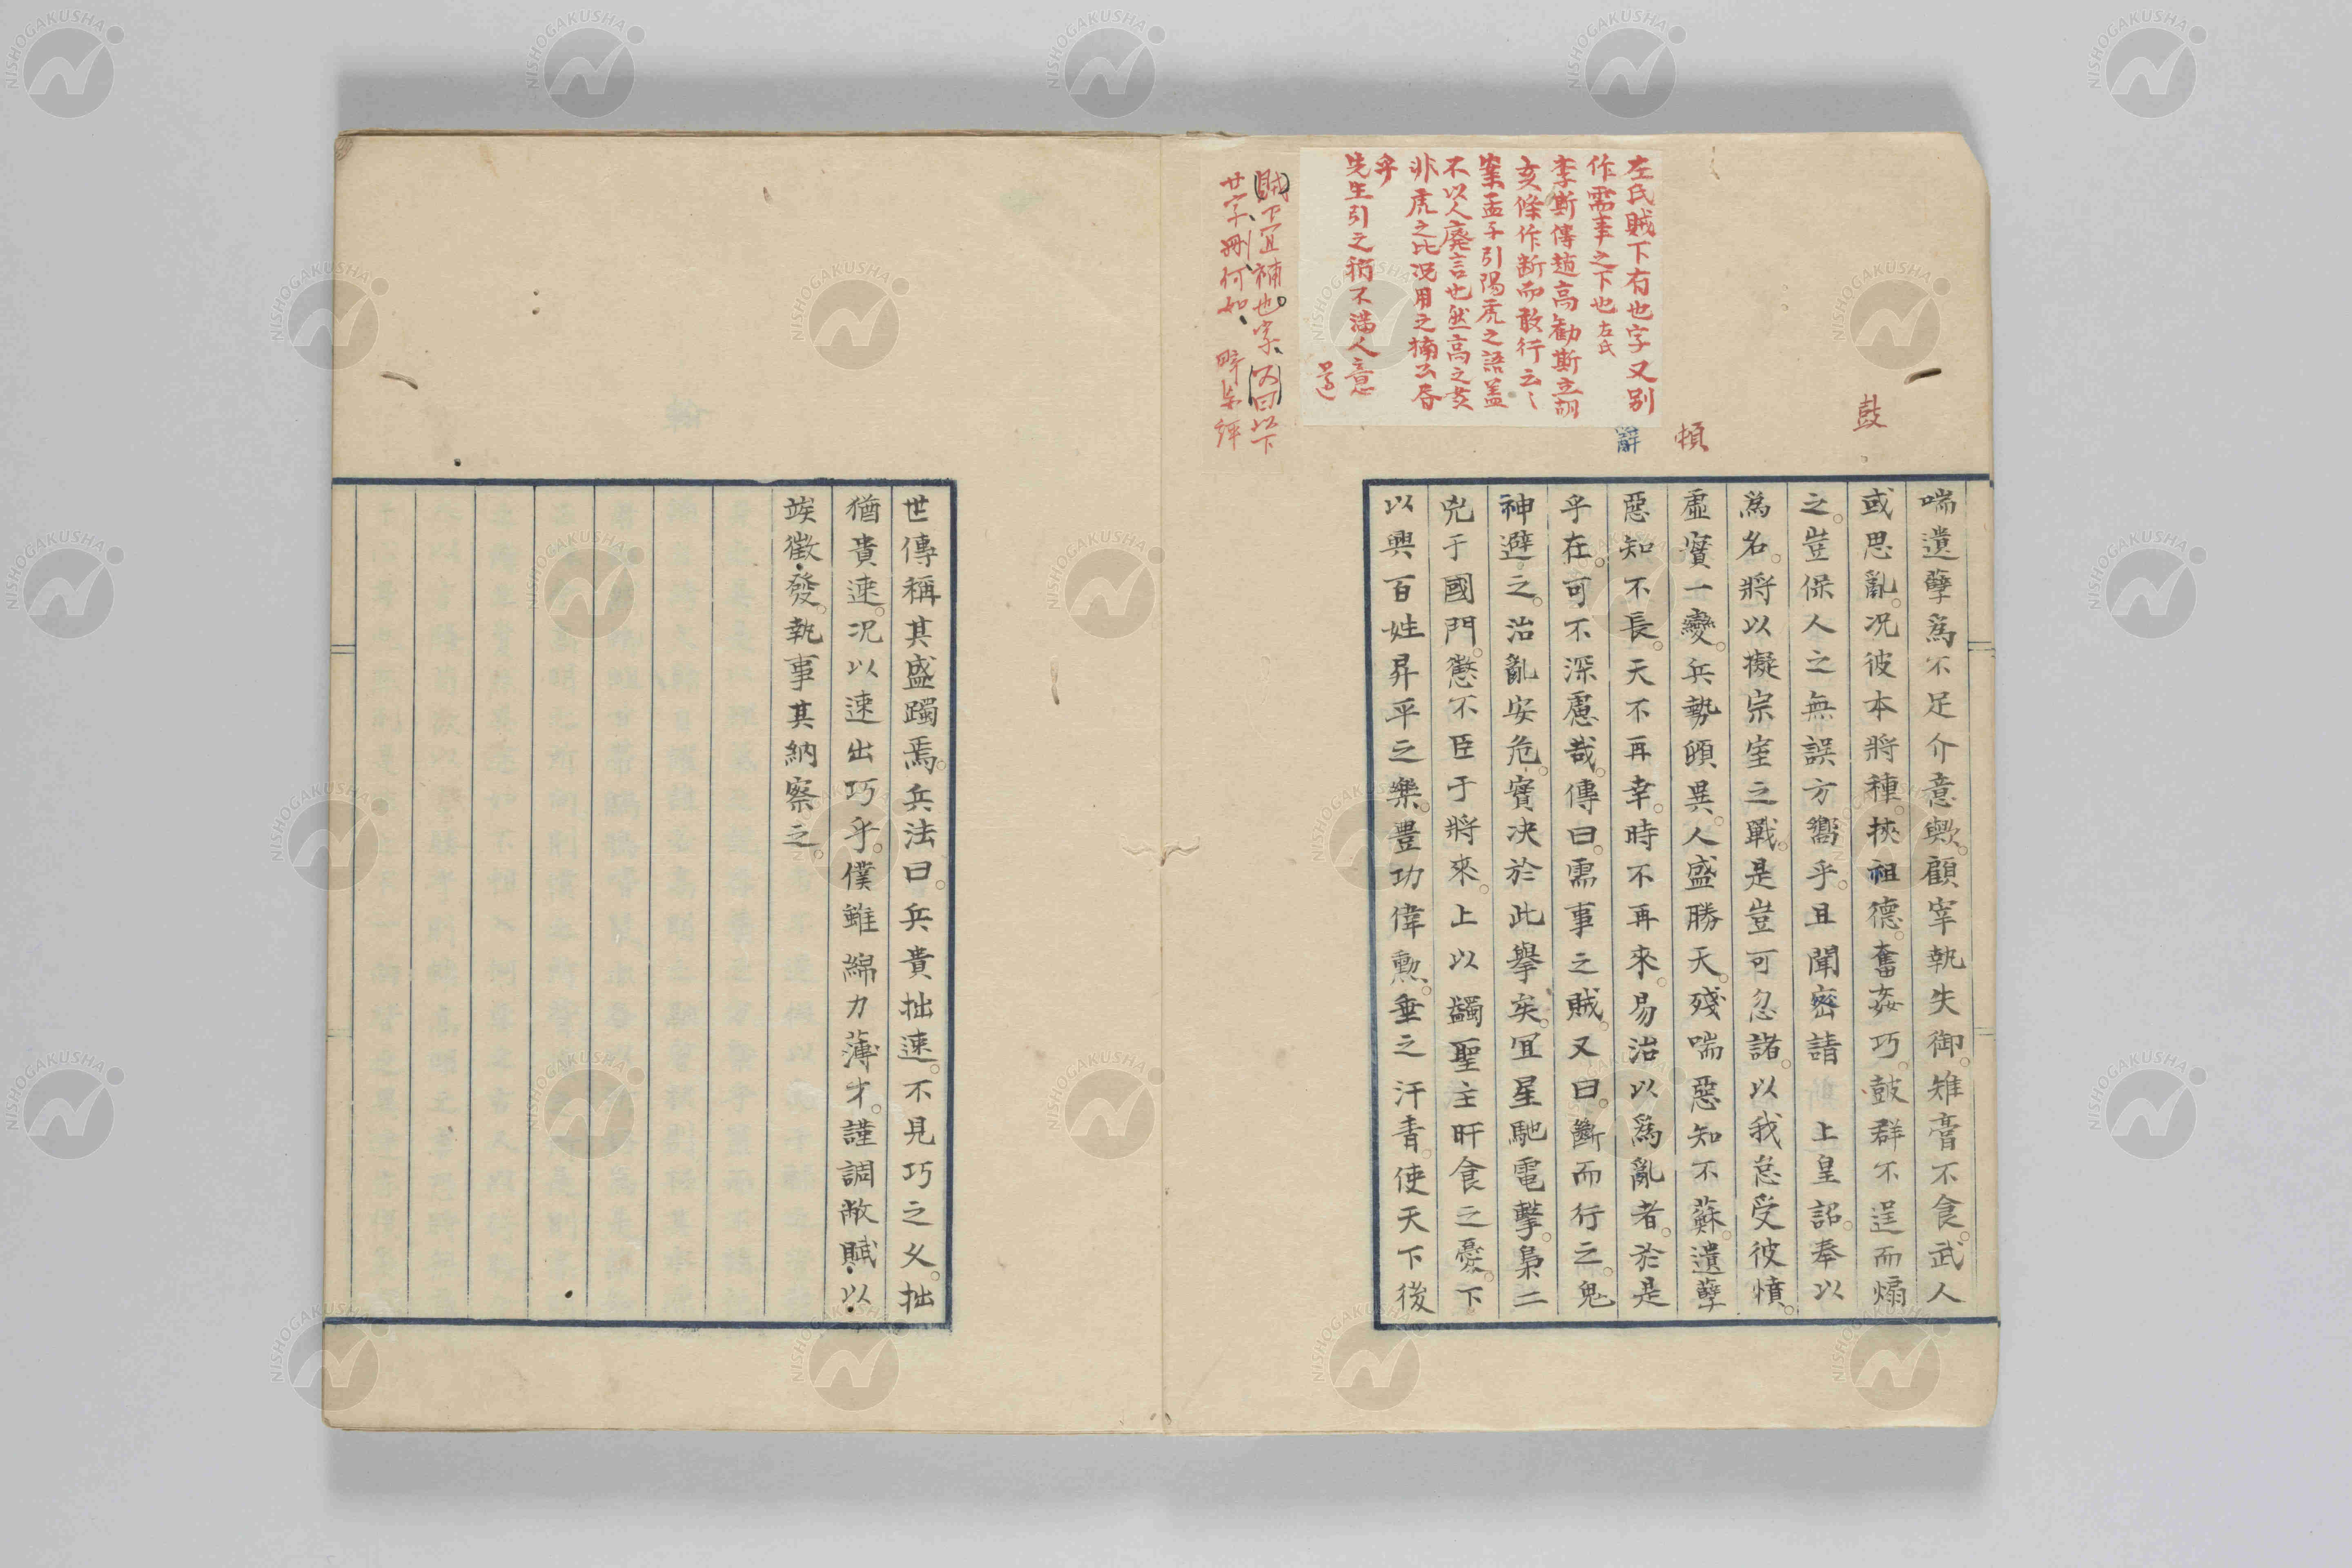 鼓
頓
辭
左氏賊下有也字又別
作需事之下也左氏
李斯傳趙高勸斯立胡
亥條作断而敢行云々
案孟子引陽虎之語盖
不以人廢言也然高之
非虎之比況用之檄
乎
先生引之稍不滿人意
賊下宜補也字、又曰以下
廿字刪何如、
喘遺孽為不足介意歟。顧宰執失御。雉膏不食。武人
或思亂。況彼本將種。挾祖德。奮姦巧。鼓群不逞而煽
之。豈保人之無誤方嚮乎。且聞密請 上皇詔。奉以
為名。將以擬宗室之戰。是豈可忽諸。以我怠受彼憤。
虛實一變。兵勢頓異。人盛勝天。殘喘惡知不蘇。遺孽
惡知不長。天不再幸。時不再來。易治以為亂者。於是
乎在。可不深慮哉。傳曰。需事之賊。又曰。斷而行之。鬼
神避之。治亂安危。實決於此舉矣。宜星馳電擊。梟二
兇于國門。懲不臣于將來。上以蠲聖主旰食之憂。下
以興百姓昇平之樂。豐功偉勲。垂之汗青。使天下後
世傳稱其盛躅焉。兵法曰。兵貴拙速。不見巧之久。拙
猶貴速。況以速出巧乎。僕雖綿力薄才。謹調敝賦。以
竢徵發。執事其納察之。